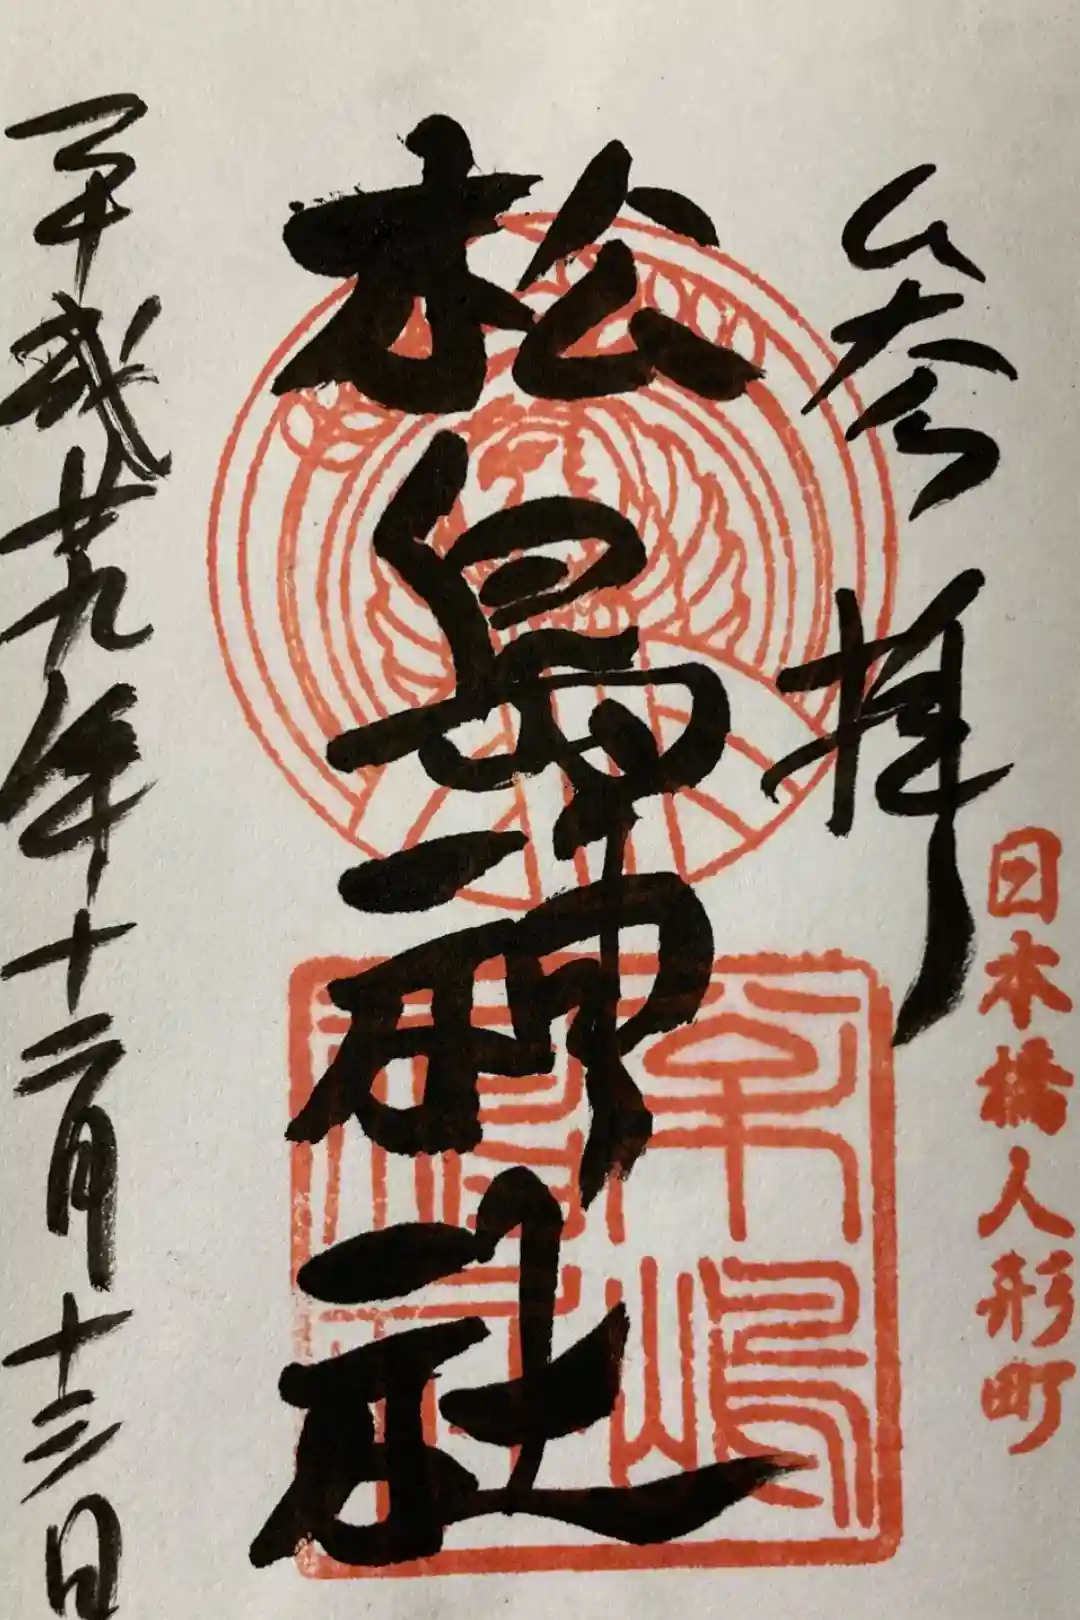 参拝
日本橋人形町
松島神社
平成廿九年十二月十三日